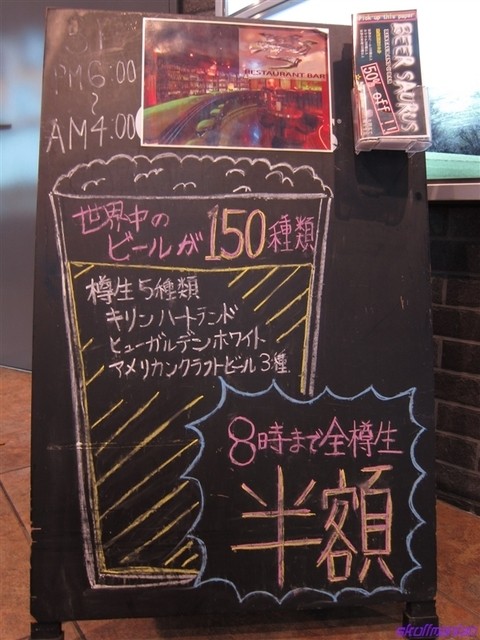 3F
PM6:00
~
AM4:00
RESTAURANT BAR
Pick up this paper
BEER SAURUS
50% OFF!!
世界中の
ビールが150種類
樽生5種類
キリンハートランド
ヒューガルデンホワイト
アメリカンクラフトビール3種
8時まで全樽生
半額